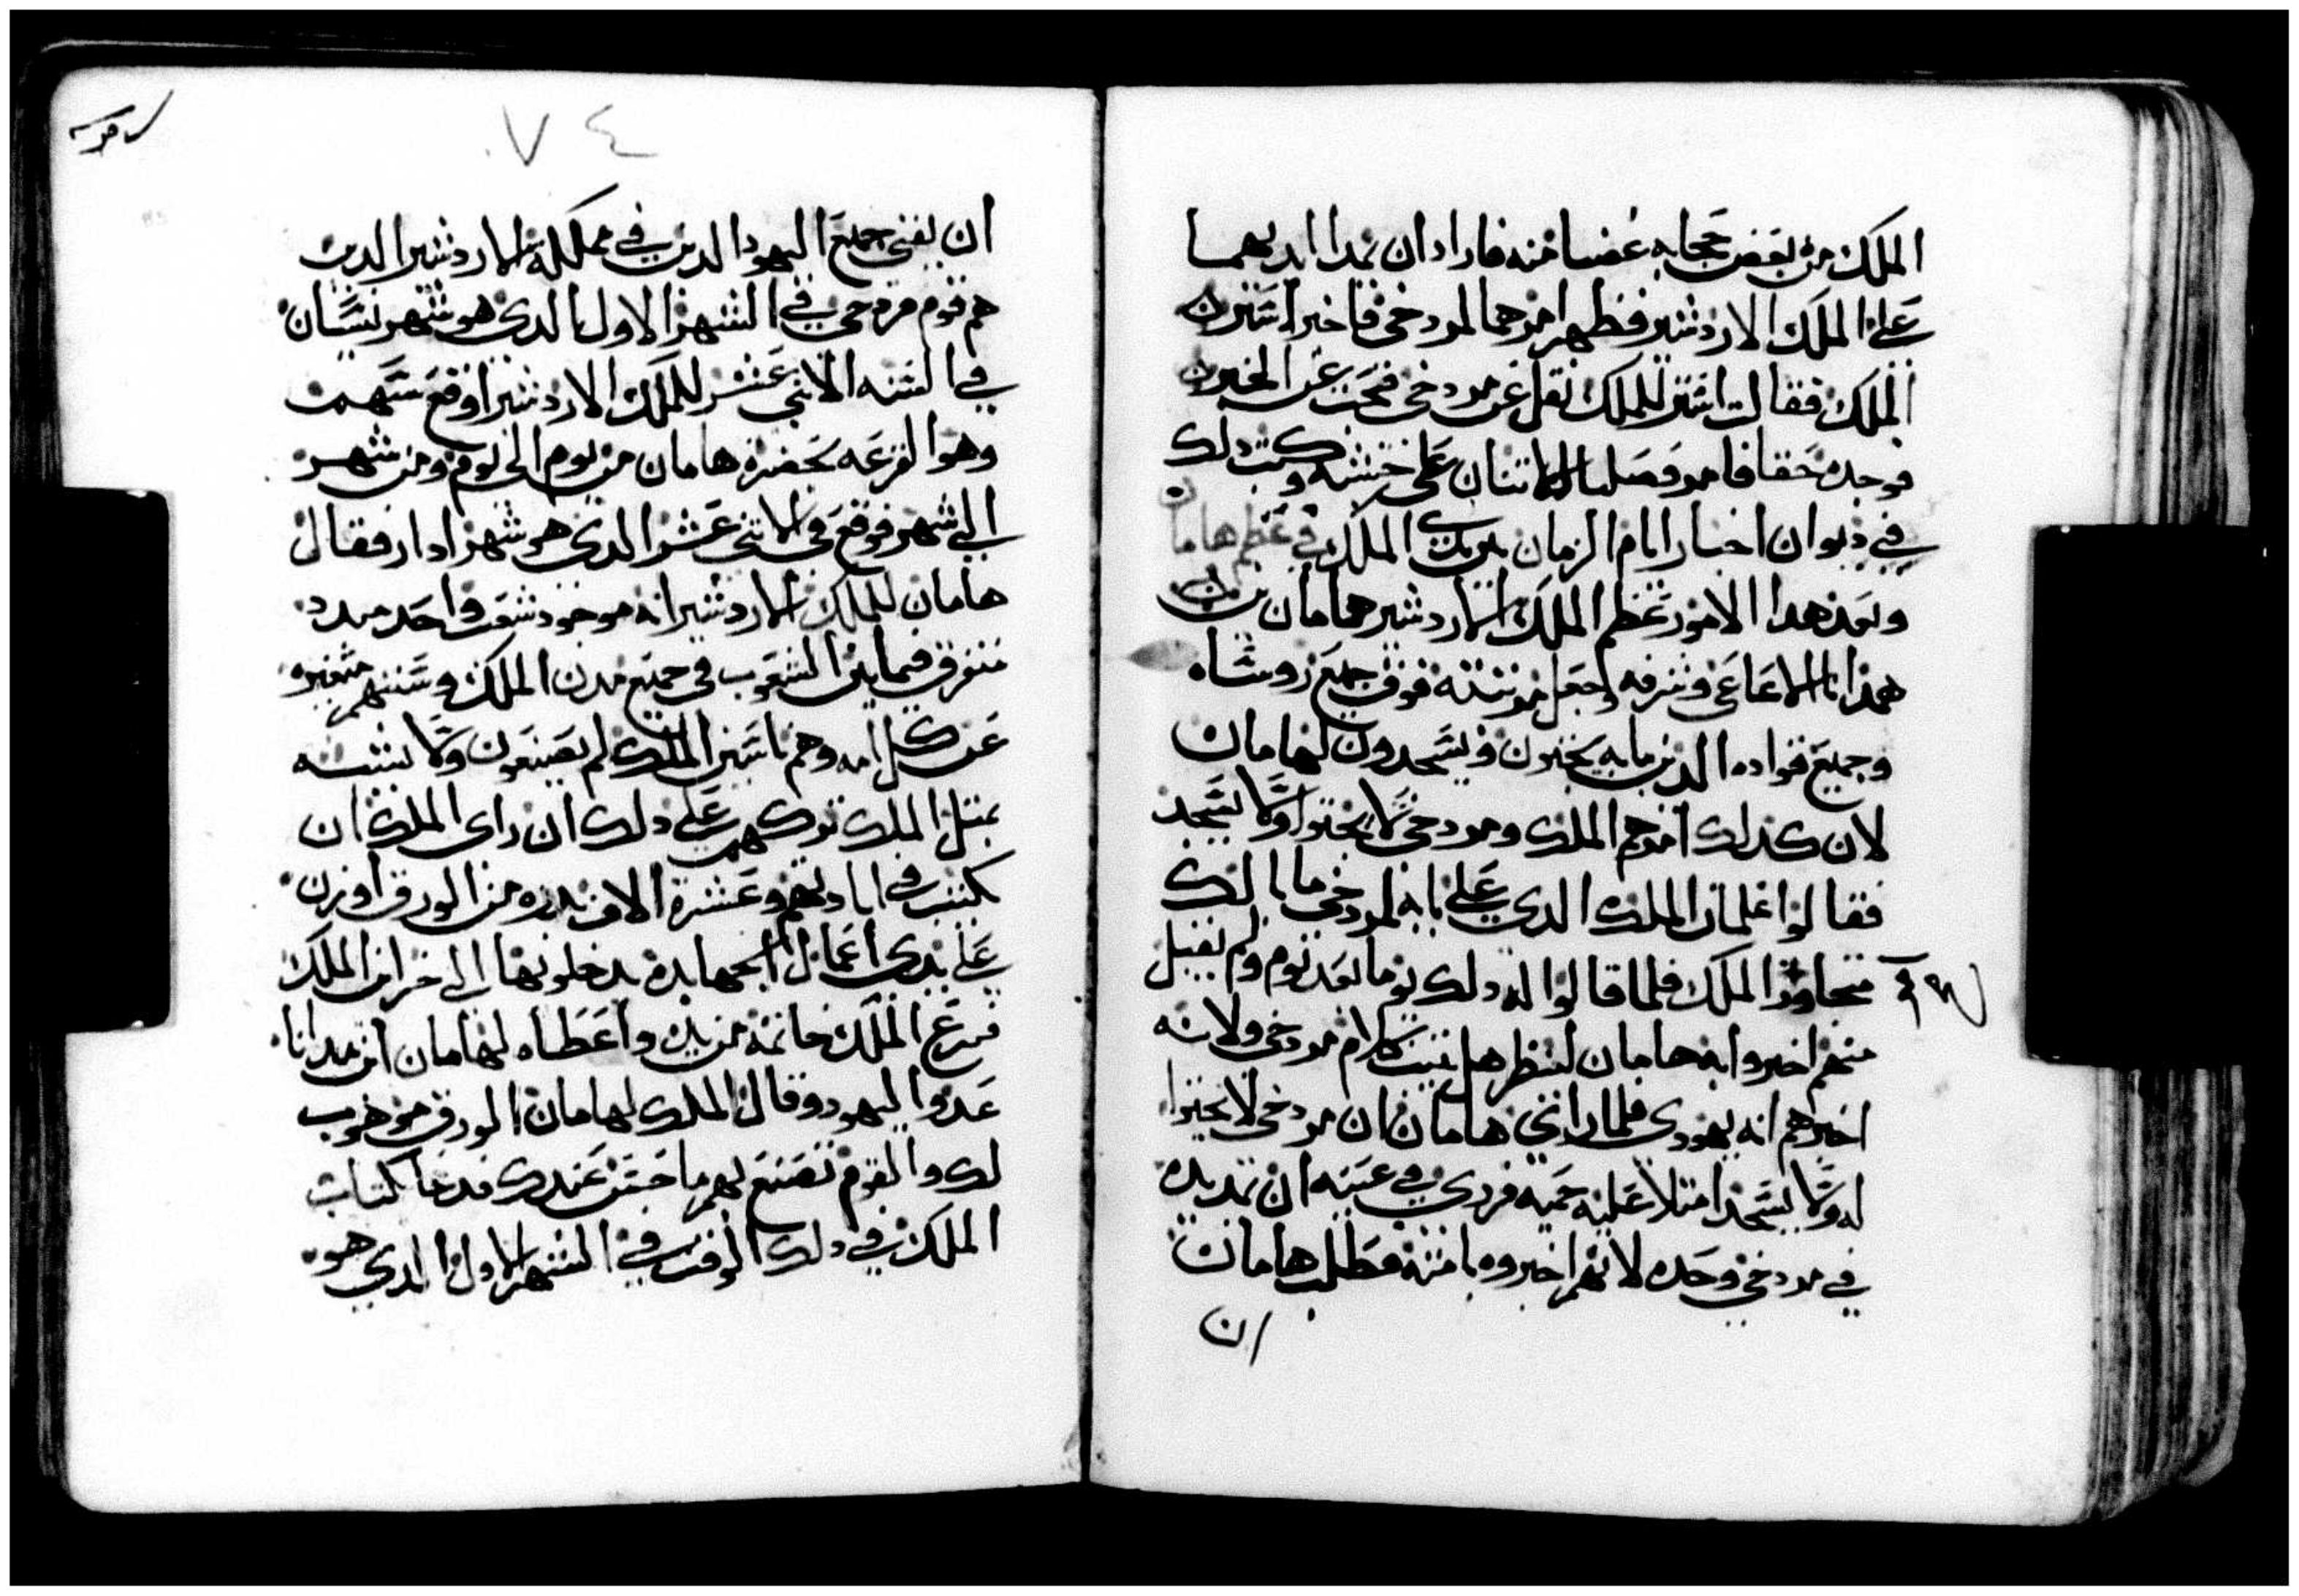 الملك من بعض حجابه غضبا منه فارادان يمدا ايديهما
على الملك الاردشير فظهر امرهما لمردخى فاخبر استيرن
الملك فقالت استير للملك نقل عن مردخى فبحث عن الخبرين
فوجده حقا فامر فصلبا الاتنان على خشبه وكتب دلك
في ديوان اخبار ايام الزمان بين يدي الملك في عظم هامان
وبعد هدا الامور عظم الملك الاردشير همامان بن
همداتا الاغاغي وشرفه وجعل مرتبته فوق جميع روساه
وجميع قواده الدين مابه يجتون ويسجدون لهامان
لان كدلك امرهم الملك ومردخى لا يجتوا ولا يسجد
فقالوا غلمان الملك الدي على بابه لمردخي ما بالك
متجاوزا الملك فلما قالوا له دلك يوما بعد يوم ولم يقبل
منهم اخبروا به هامان لينظر هل يتبت كلام مردخي ولانه
اخبرهم انه يهودي فلما راي هامان ان مردخي لا يجتوا
له ولا يسجد امتلا عليه حميه فردي في عينه ان يمد يده
في مردخي وحده لانهم اخبروه بامته فطلب هامان
ان
٧٤
ان يفني جميع اليهود الدين في مملكة الاردشير الدين
هم قوم مردخي في الشهر الاول الدي هو شهر نيسان
في السنه الاتني عشر للملك الاردشير اوقع سهم
وهو القرعه بحضرة هامان من يوم الى يوم ومن شهر
الى شهر فوقع في الاتني عشر الدي هو شهر ادار فقال
هامان للملك الاردشير انه موجود شعب واحد مبدد
متفرق فيما بين الشعوب في جميع مدن الملك وسننهم متغيره
عن كل امه وهم ناس الملك لم يصنعون ولا يشبه
بمتل الملك تركهم على دلك ان راى الملك ان
يكتب في ابادتهم وعشرة الاف بدره من الورق اوزن
على يدي اعمال الجهابده يدخلونها الى خزاين الملك
فنزع الملك خاتمه من يده واعطاه لهامان ابن همداتا
عدوا اليهود وقال الملك لهامان الورق موهوب
لك والقوم تصنع بهم ما حسن عندك فدعا كتاب
الملك في دلك الوقت في الشهر الاول الدي هو